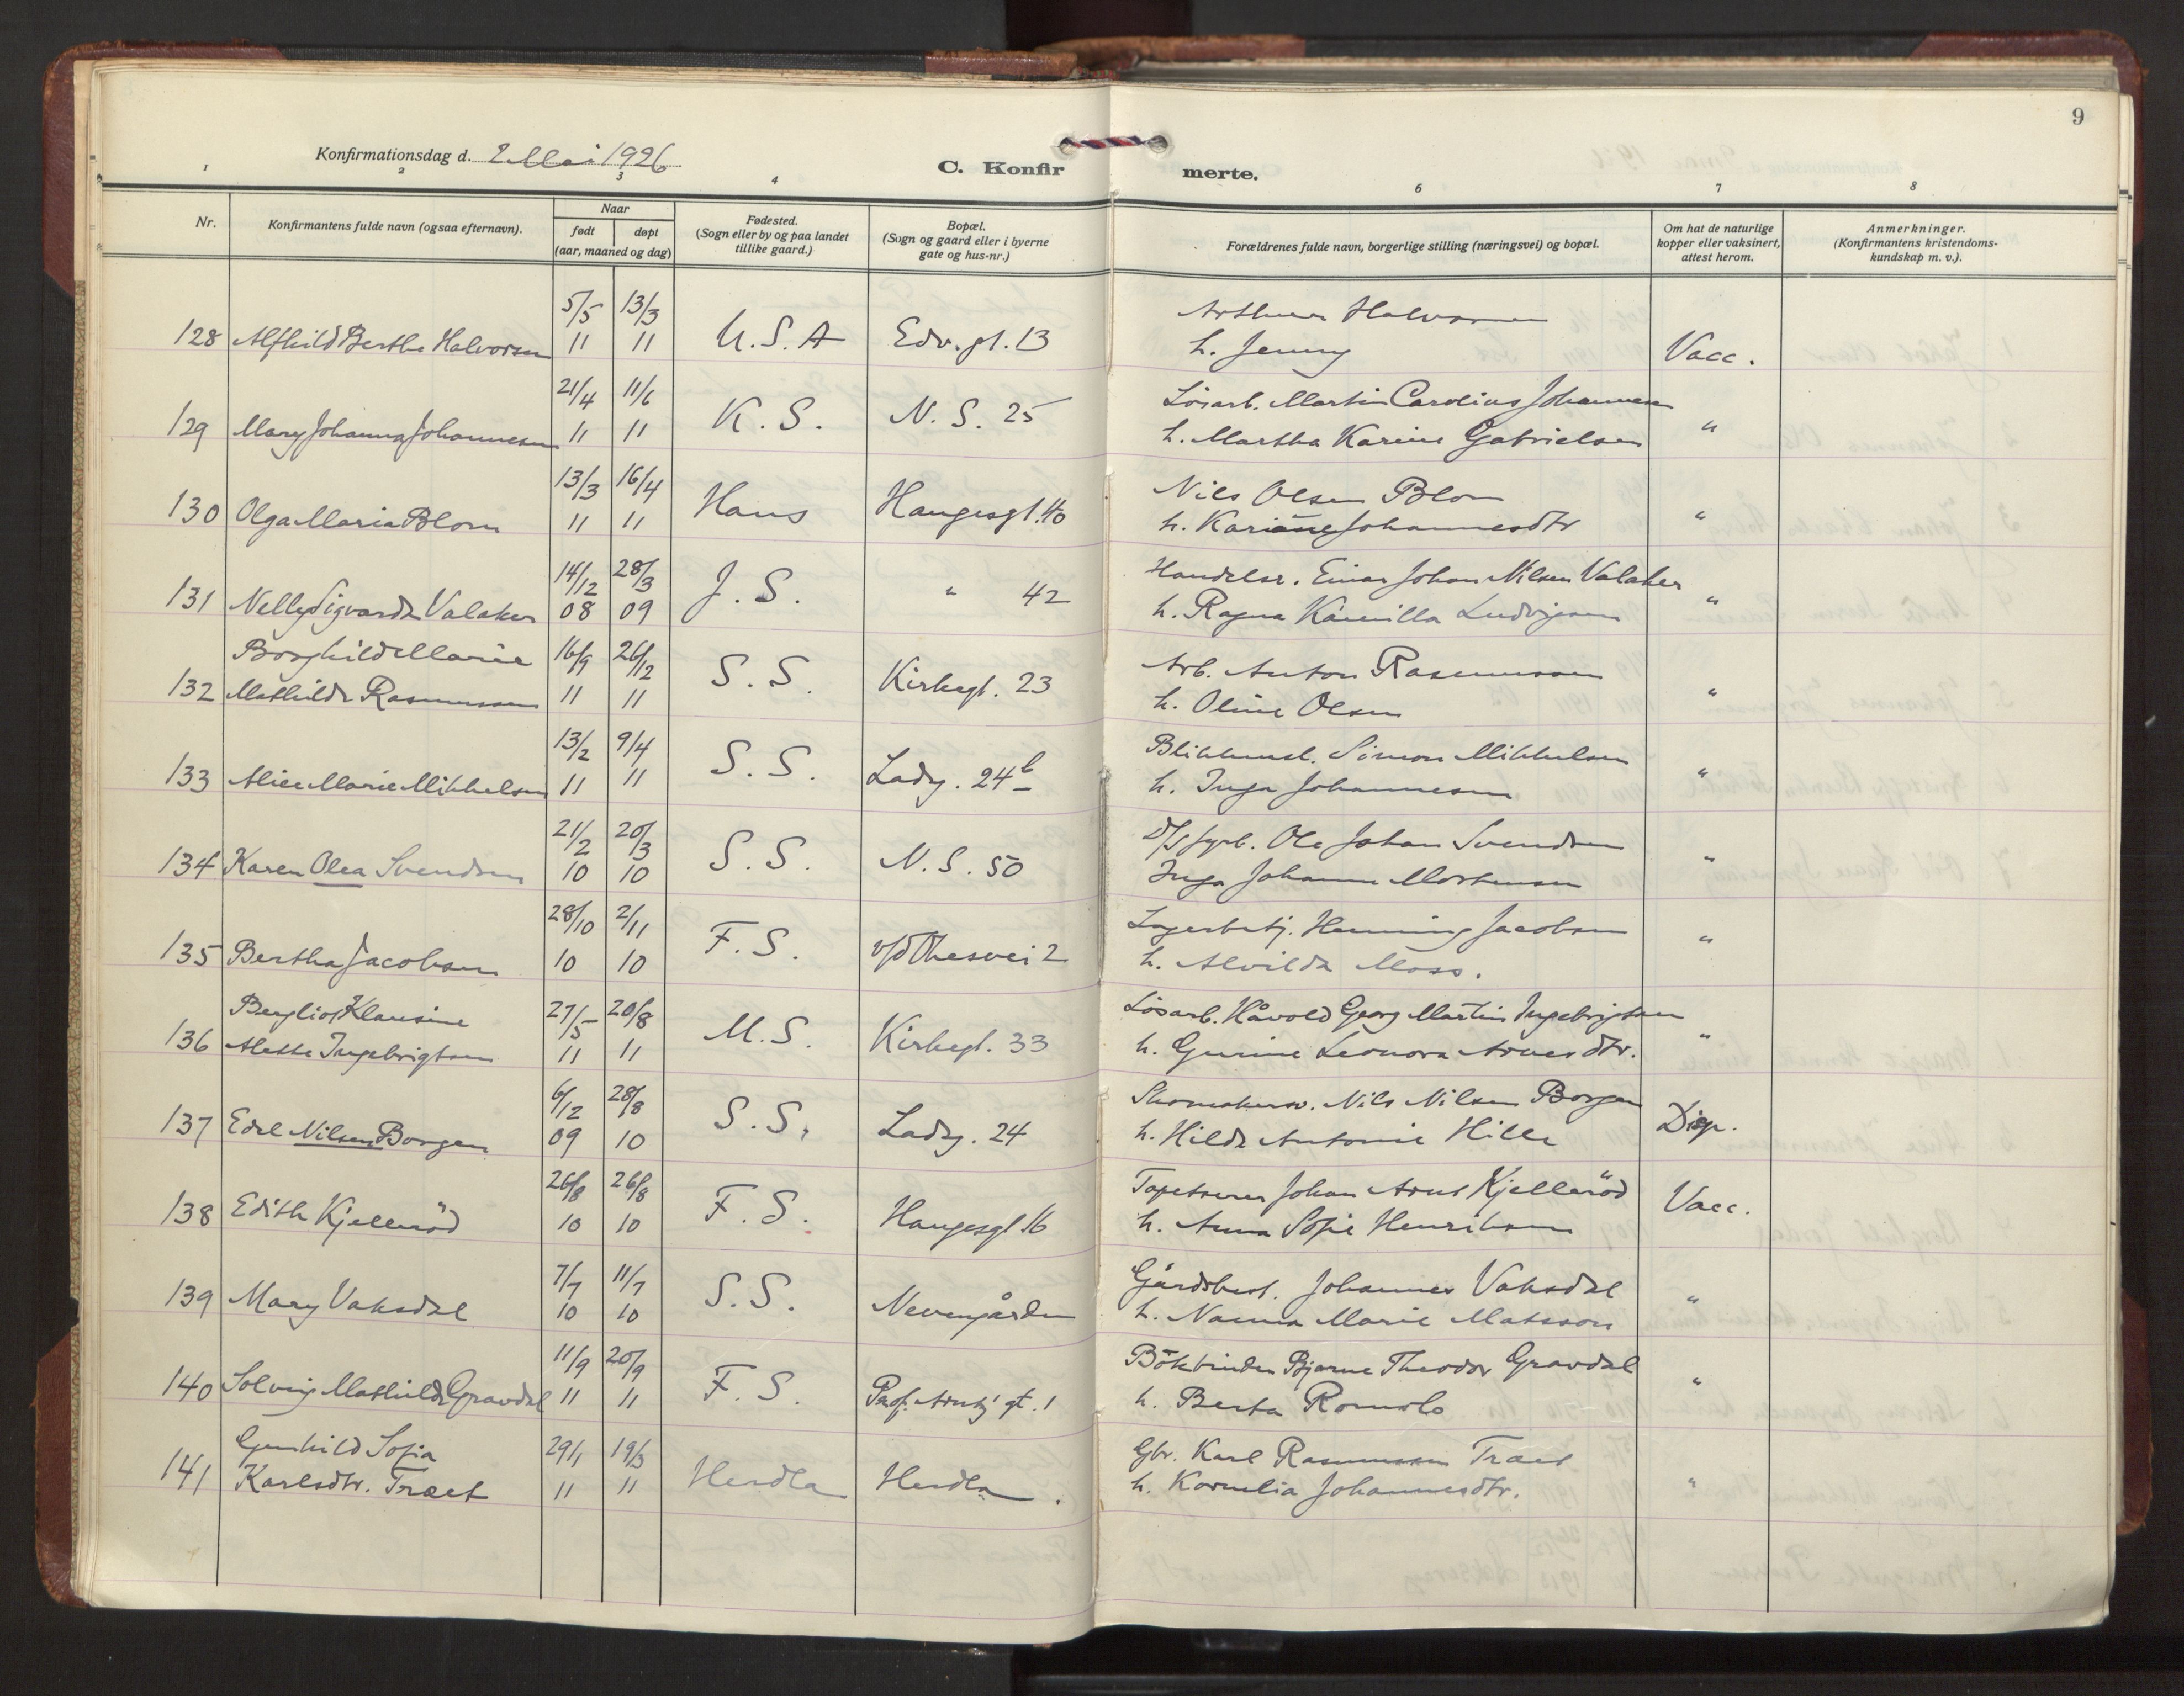 9
Konfirmationsdag d. 2 Mai 1926
C. Konfirmerte.
1 2 3 4 6 7 8
Nr.
Konfirmantens fulde navn (ogsaa efternavn).
Naar
født døpt
(aar, maaned og dag)
Fødested.
(Sogn eller by og paa landet
tillike gaard.)
Bopæl.
(Sogn og gaard eller i byerne
gate og hus-nr.)
Forældrenes fulde navn, borgerlige stilling (næringsvei) og bopæl.
Om hat de naturlige
kopper eller vaksinert,
attest herom.
Anmerkninger.
(Konfirmantens kristendoms-
kundskap m. v.).
5/5 13/3 Arthur Halvorsen
128 Alfhild Berthe Halvorsen 11 11 U.S.A Edv. gt. 13 h. Jenny Vacc.
21/4 11/6 Lösarb. Martin Carolius Johannesen
129 Mary Johanna Johannesen 11 11 K.S. N.S. 25 h. Martha Karine Gabrielsen "
13/3 16/4 Nils Olsen Blom
130 Olga Maria Blom 11 11 Haus Haugesgt. 40 h. Kariane Johannesdtr "
14/12 28/3 Handelsr. Einar Johan Nilsen Valaker
131 Nelly Sigvarda Valaker 08 09 J.S. " 42 h. Ragna Kamilla Ludvigsen "
Borghild Marie 16/9 26/12 Arb. Anton Rasmussen
132 Mathilde Rasmussen 11 11 S.S. Kirkegt. 23 h. Oline Olsen "
13/2 9/4 Blikkensl. Simon Mikkelsen
133 Alice Marie Mikkelsen 11 11 S.S. Ladeg. 24 b h. Inga Johannesen "
21/2 20/3 D/S fyrb. Ole Johan Svendsen
134 Karen Olea Svendsen 10 10 S.S. N.S. 50 Inga Johanne Mortensen "
28/10 2/11 Lagerbetj. Henning Jacobsen
135 Bertha Jacobsen 10 10 F.S. 2 h. Alvilda Moss. "
Bergliot Klausine 27/5 20/8 Lösarb. Håvold Georg Martin Ingebrigtsen
136 Alette Ingebrigtsen 11 11 M.S. Kirkegt. 33 h. Gurine Leonora Arnesdtr. "
6/12 28/8 Skomakersv. Nils Nilsen Borgen
137 Edel Nilsen Borgen 09 10 S.S. Ladeg. 24 h. Hilda Antonie Hille Disp.
26/8 26/8 Tapetserer Johan Arnt Kjelleröd
138 Edith Kjelleröd 10 10 F.S. Haugesgt 16 h. Anna Sofie Henriksen Vacc.
7/7 11/7 Gårdsbest. Johannes Vaksdal
139 Mary Vaksdal 10 10 S.S. Nevengården h. Nanna Marie Matsson "
11/9 20/9 Bokbinder Bjarne Theodor Gravdal
140 Solveig Mathilde Gravdal 11 11 F.S. gt. 1 h. Berta Romslo "
Gunhild Sofia 29/1 19/3 Gbr. Karl Rasmussen Træet
141 Karlsdtr. Træet 11 11 Herdla Herdla. h. Kornelia Johannesdtr. "